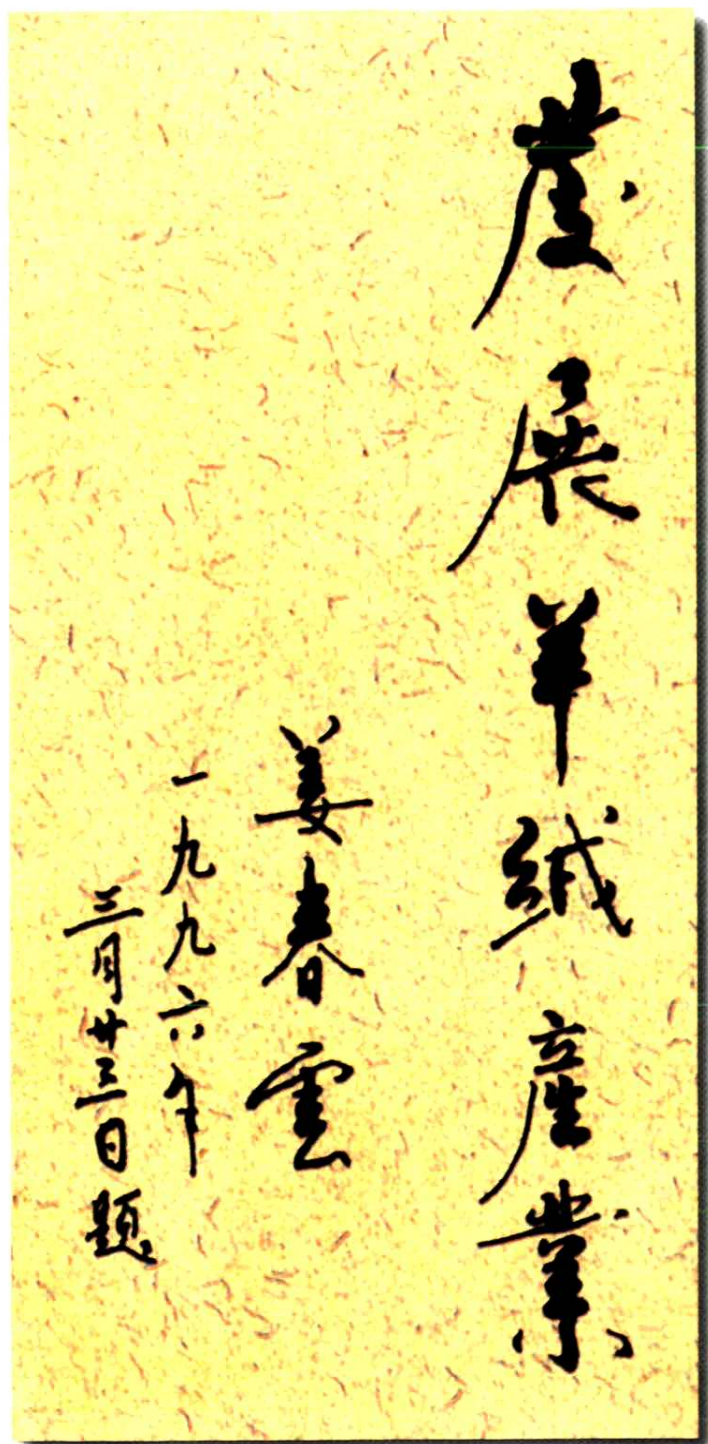 發展羊絨產業
姜春雲
一九九六年
三月廿三日題